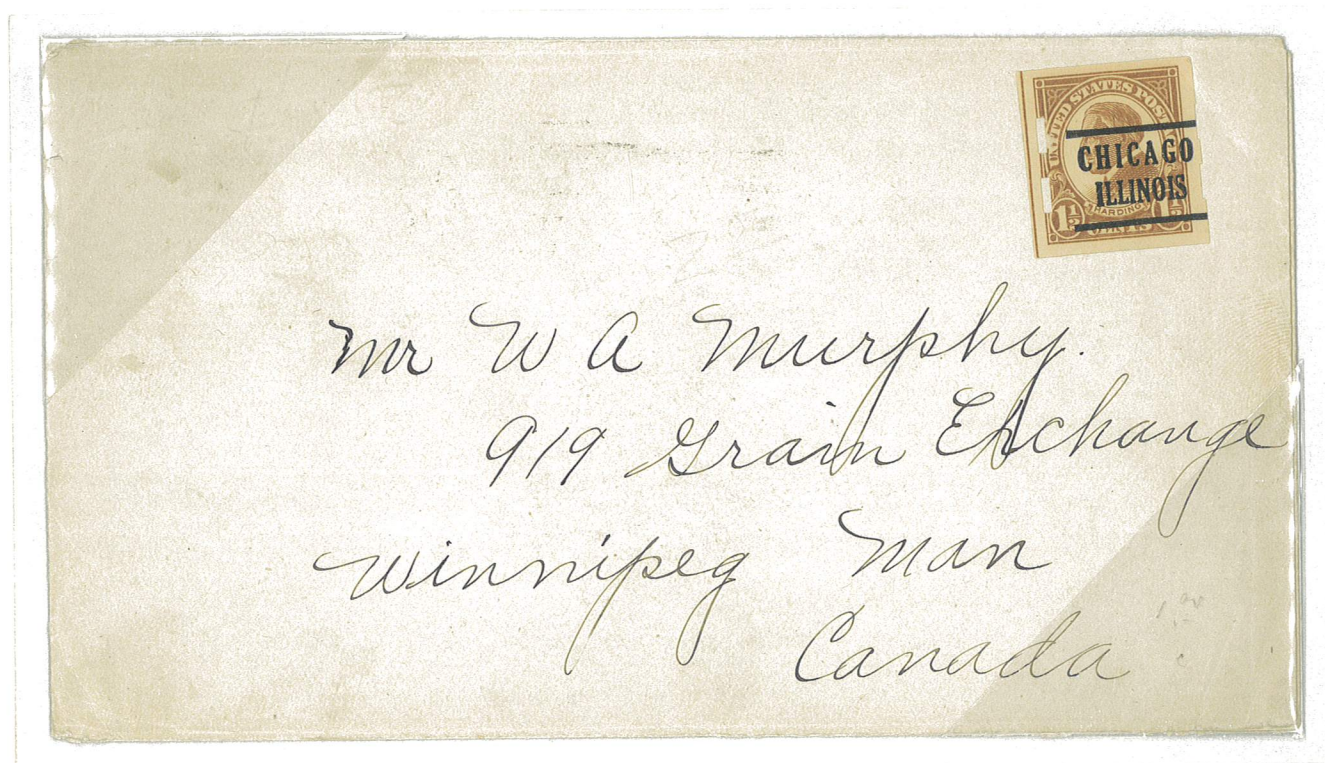 UNITED STATES POST
CHICAGO
ILLINOIS
HARDING
1½ 1½
Mr W A Murphy.
919 Grain Exchange
Winnipeg Man
Canada